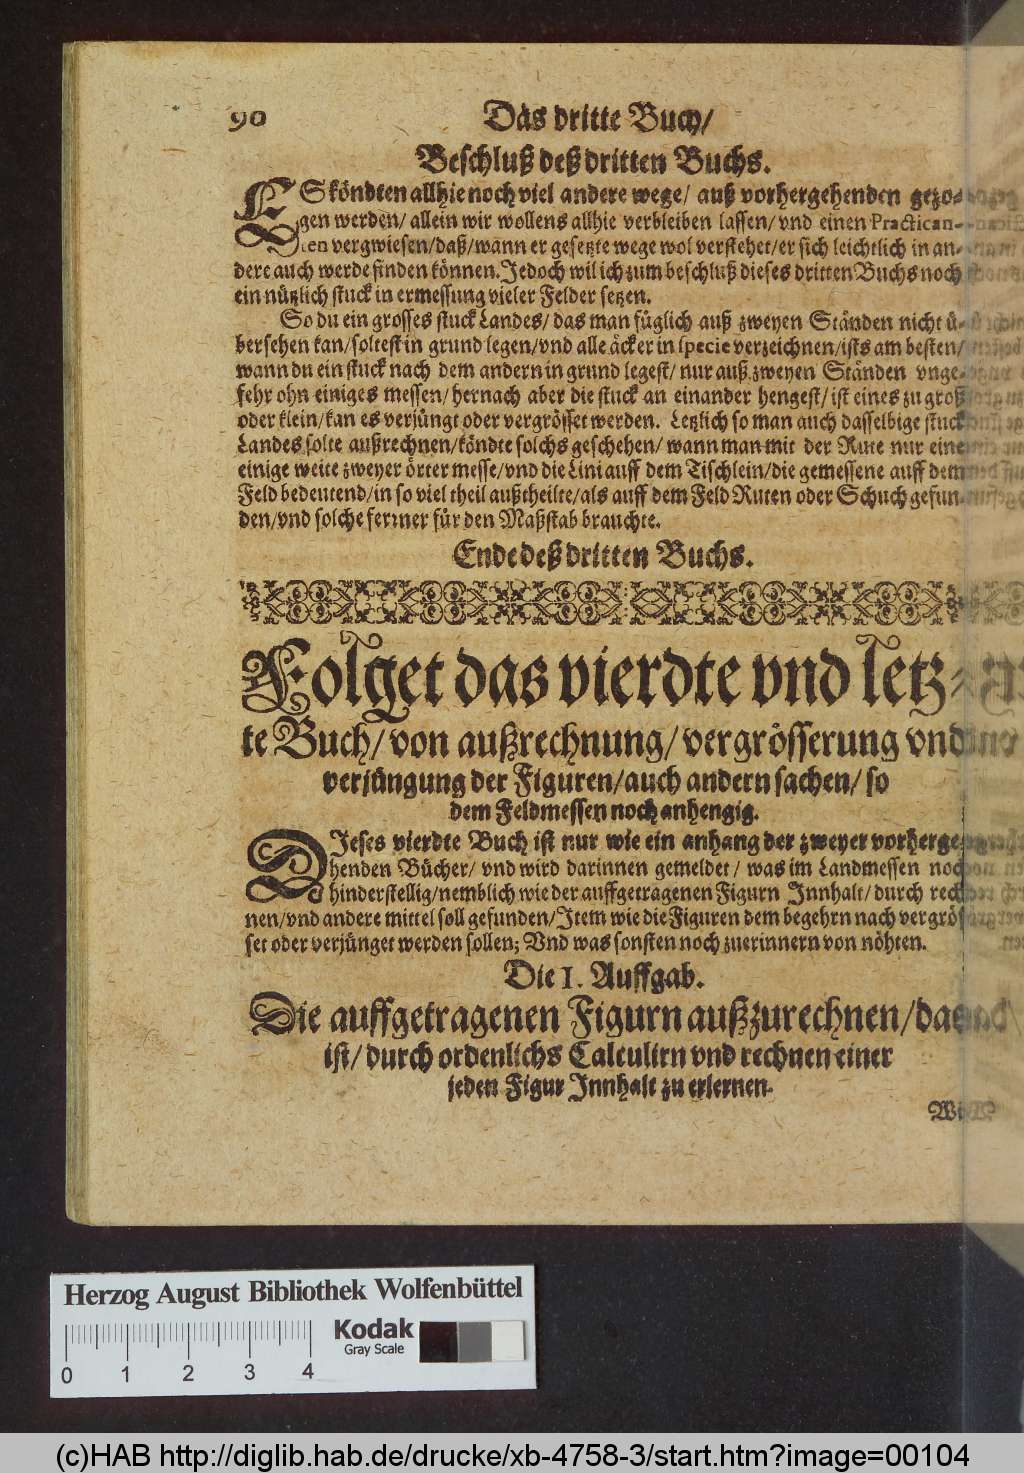 90
Das dritte Buch/
Beschluß deß dritten Buchs.
ES köndten allhie noch viel andere wege/ auß vorhergehenden gezo-
gen werden/ allein wir wollens allhie verbleiben lassen/ vnd einen Practican-
ten vergwiesen/ daß/ wann er gesetzte wege wol verstehet/ er sich leichtlich in an-
dere auch werde finden können. Jedoch wil ich zum beschluß dieses dritten Buchs noch
ein nützlich stuck in ermessung vieler Felder setzen.
So du ein grosses stuck Landes/ das man füglich auß zweyen Ständen nicht ü-
bersehen kan/ soltest in grund legen/ vnd alle äcker in specie verzeichnen/ ists am besten/
wann du ein stuck nach dem andern in grund legest/ nur auß zweyen Ständen vnge-
fehr ohn einiges messen/ hernach aber die stuck an einander hengest/ ist eines zu groß
oder klein/ kan es verjüngt oder vergrösset werden. Letzlich so man auch dasselbige stuck
Landes solte außrechnen/ köndte solchs geschehen/ wann man mit der Rute nur eine
einige weite zweyer örter messe/ vnd die Lini auff dem Tischlein/ die gemessene auff dem
Feld bedeutend/ in so viel theil außtheilte/ als auff dem Feld Ruten oder Schuch gefun-
den/ vnd solche ferrner für den Maßstab brauchte.
Ende deß dritten Buchs.
Folget das vierdte vnd letz-
te Buch/ von außrechnung/ vergrösserung vnd
verjüngung der Figuren/ auch andern sachen/ so
dem Feldmessen noch anhengig.
DJeses vierdte Buch ist nur wie ein anhang der zweyer vorherge-
henden Bücher/ vnd wird darinnen gemeldet/ was im Landmessen noch
hinderstellig/ nemblich wie der auffgetragenen Figurn Jnnhalt/ durch rech-
nen/ vnd andere mittel soll gefunden/ Jtem wie die Figuren dem begehrn nach vergrös-
set oder verjünget werden sollen; Vnd was sonsten noch zuerinnern von nöhten.
Die 1. Auffgab.
Die auffgetragenen Figurn außzurechnen/ das
ist/ durch ordenlichs Calculirn vnd rechnen einer
jeden Figur Jnnhalt zu erlernen.
Herzog August Bibliothek Wolfenbüttel
Kodak
Gray Scale
0 1 2 3 4
(c)HAB http://diglib.hab.de/drucke/xb-4758-3/start.htm?image=00104